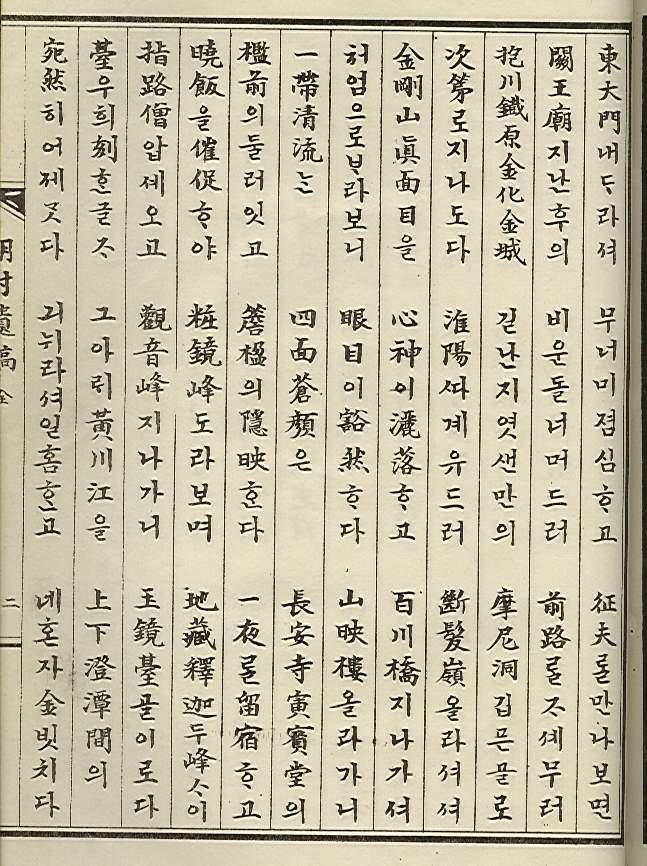 東大門내ᄃᆞ라셔 무너미졈심ᄒᆞ고 征夫ᄅᆞᆯ만나보면
關王廟지난후의 비운돌너머드러 前路ᄅᆞᆯᄌᆞ셰무러
抱川鐵原金化金城 길난지엿샌만의 摩尼洞깁픈골로
次第로지나도다 淮陽ᄯᅡ계유드러 斷髮嶺올라셔셔
金剛山眞面目을 心神이灑落ᄒᆞ고 百川橋지나가셔
처엄으로ᄇᆞ라보니 眼目이豁然ᄒᆞ다 山映樓올라가니
一帶清流ᄂᆞᆫ 四面蒼顔은 長安寺寅賓堂의
檻前의둘러잇고 簷楹의隱映ᄒᆞᆫ다 一夜ᄅᆞᆯ留宿ᄒᆞ고
曉飯을催促ᄒᆞ야 粧鏡峰도라보며 地藏釋迦두峰ᄉᆞ이
指路僧압셰오고 觀音峰지나가니 玉鏡臺골이로다
臺우희刻ᄒᆞᆫ글ᄌᆞ 그아ᄅᆡ黃川江을 上下澄潭間의
宛然히어제ᄀᆞᆺ다 긔뉘라셔일홈ᄒᆞ고 네혼자金빗치다
明村遺稿 全 二